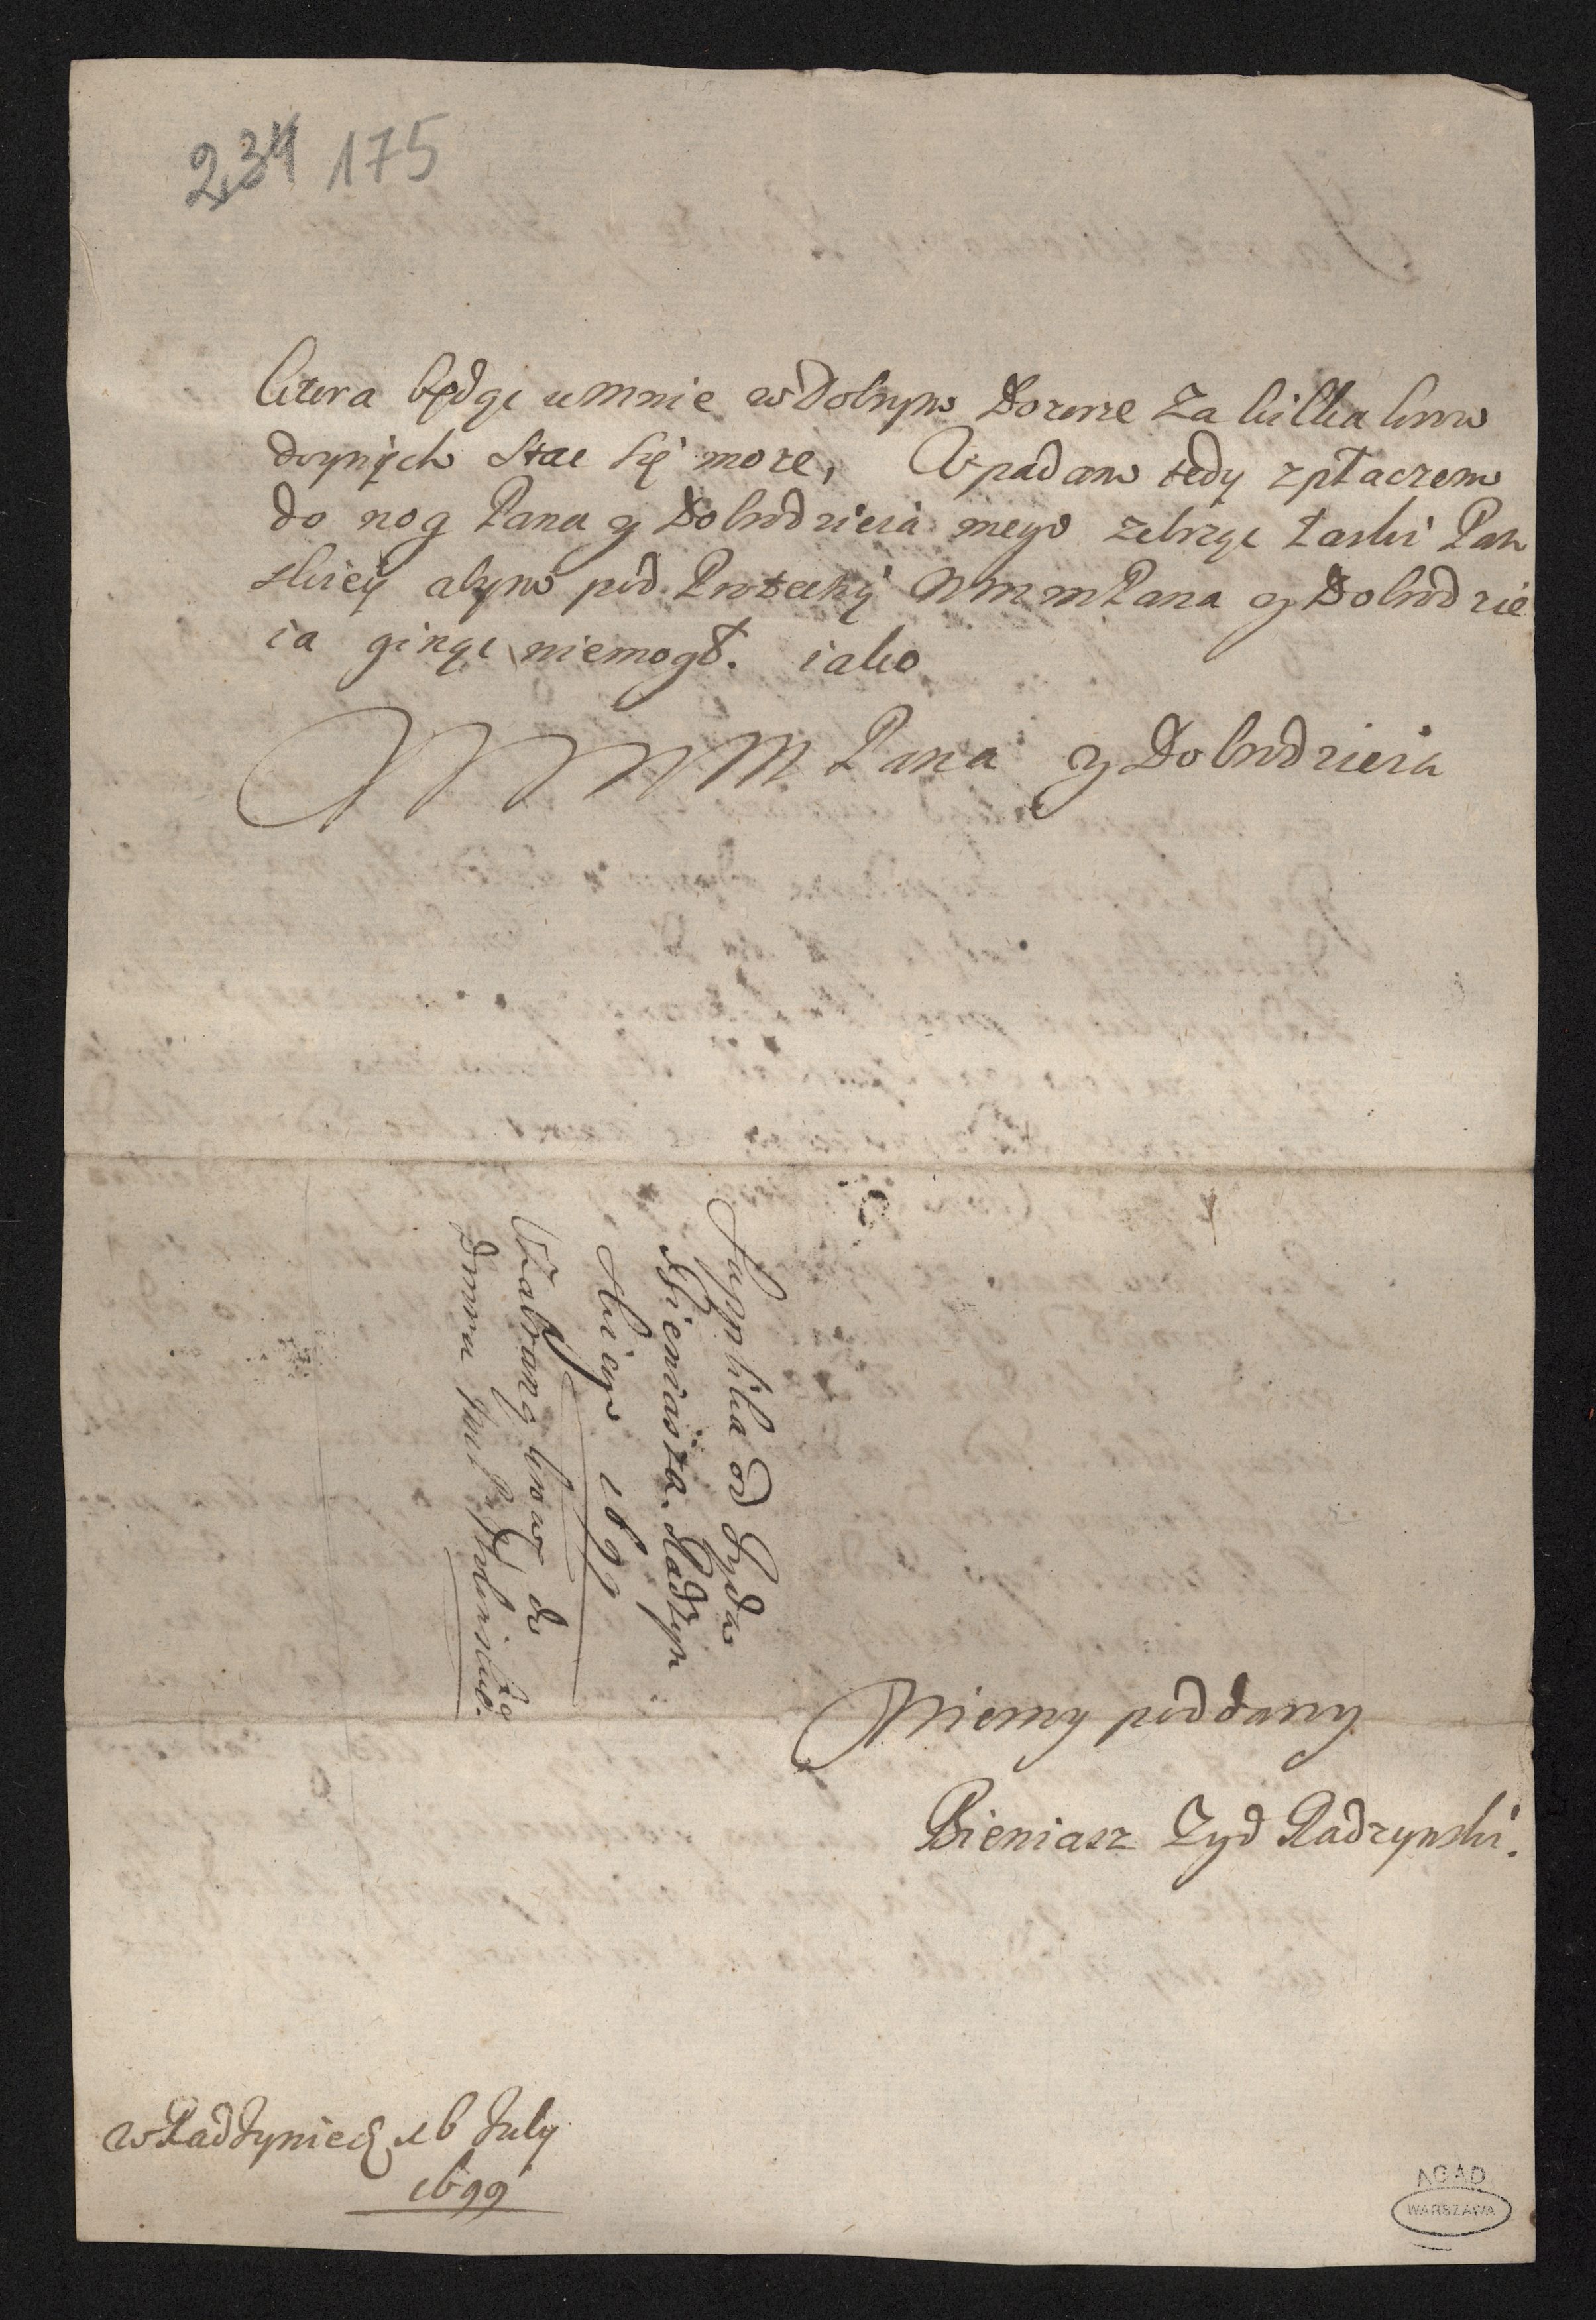 234 175
ktora będąc u mnie w dobrym dozorze za kilka krow
doynych stac się moze, Upadam tedy z płaczem
do nog Pana y Dobrodzieia mego zebrząc łaski Pan
skiey abym pod Protekcyą WMM Pana y Dobrodzie
ia ginąc niemogł. iako
WMM Pana y Dobrodzieia
Supplika od Zyda
Bieniasza Radzyn
skiego 1699
Zabraną krowę do
Dwora
Wierny poddany
Bieniasz Zyd Radzynski.
w Radzyniu 16 July
1699
AGAD
WARSZAWA